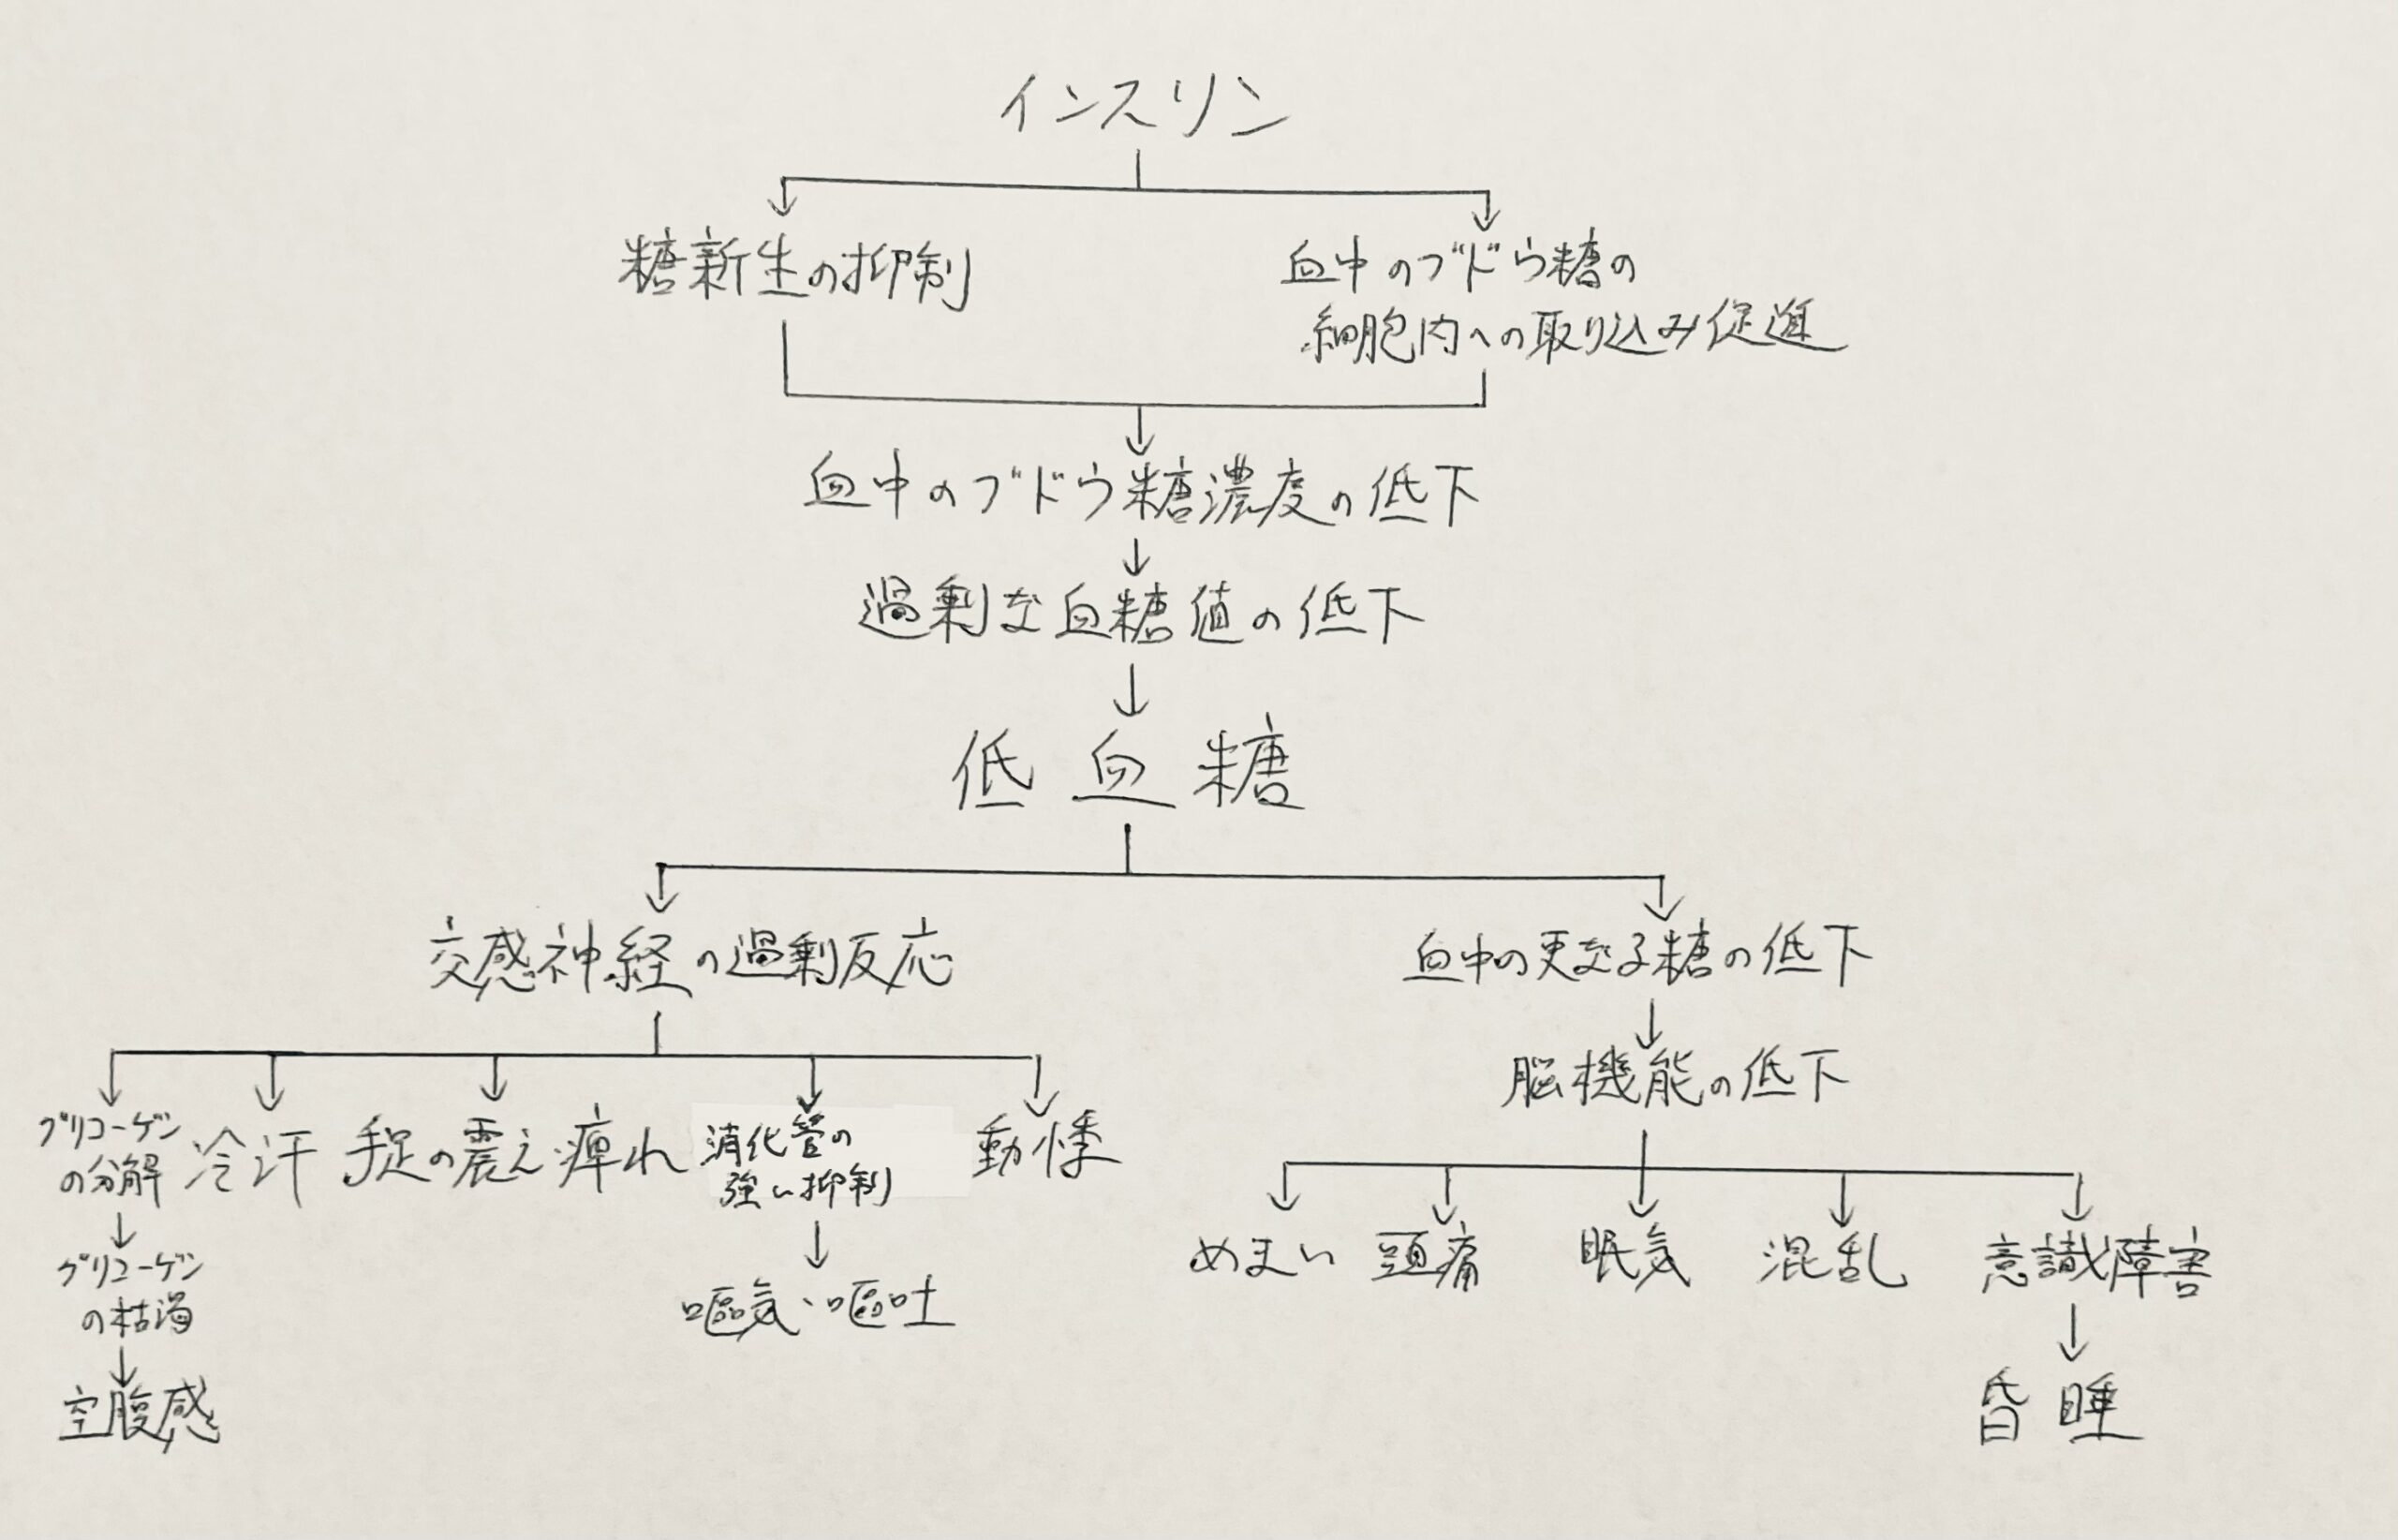 インスリン
糖新生の抑制
血中のブドウ糖の
細胞内への取り込み促進
血中のブドウ糖濃度の低下
過剰な血糖値の低下
低血糖
交感神経の過剰反応
血中の更なる糖の低下
脳機能の低下
グリコーゲン
の分解
冷汗
手足の震え・痺れ
消化管の
強い抑制
動悸
グリコーゲン
の枯渇
空腹感
嘔気・嘔吐
めまい
頭痛
眠気
混乱
意識障害
昏睡